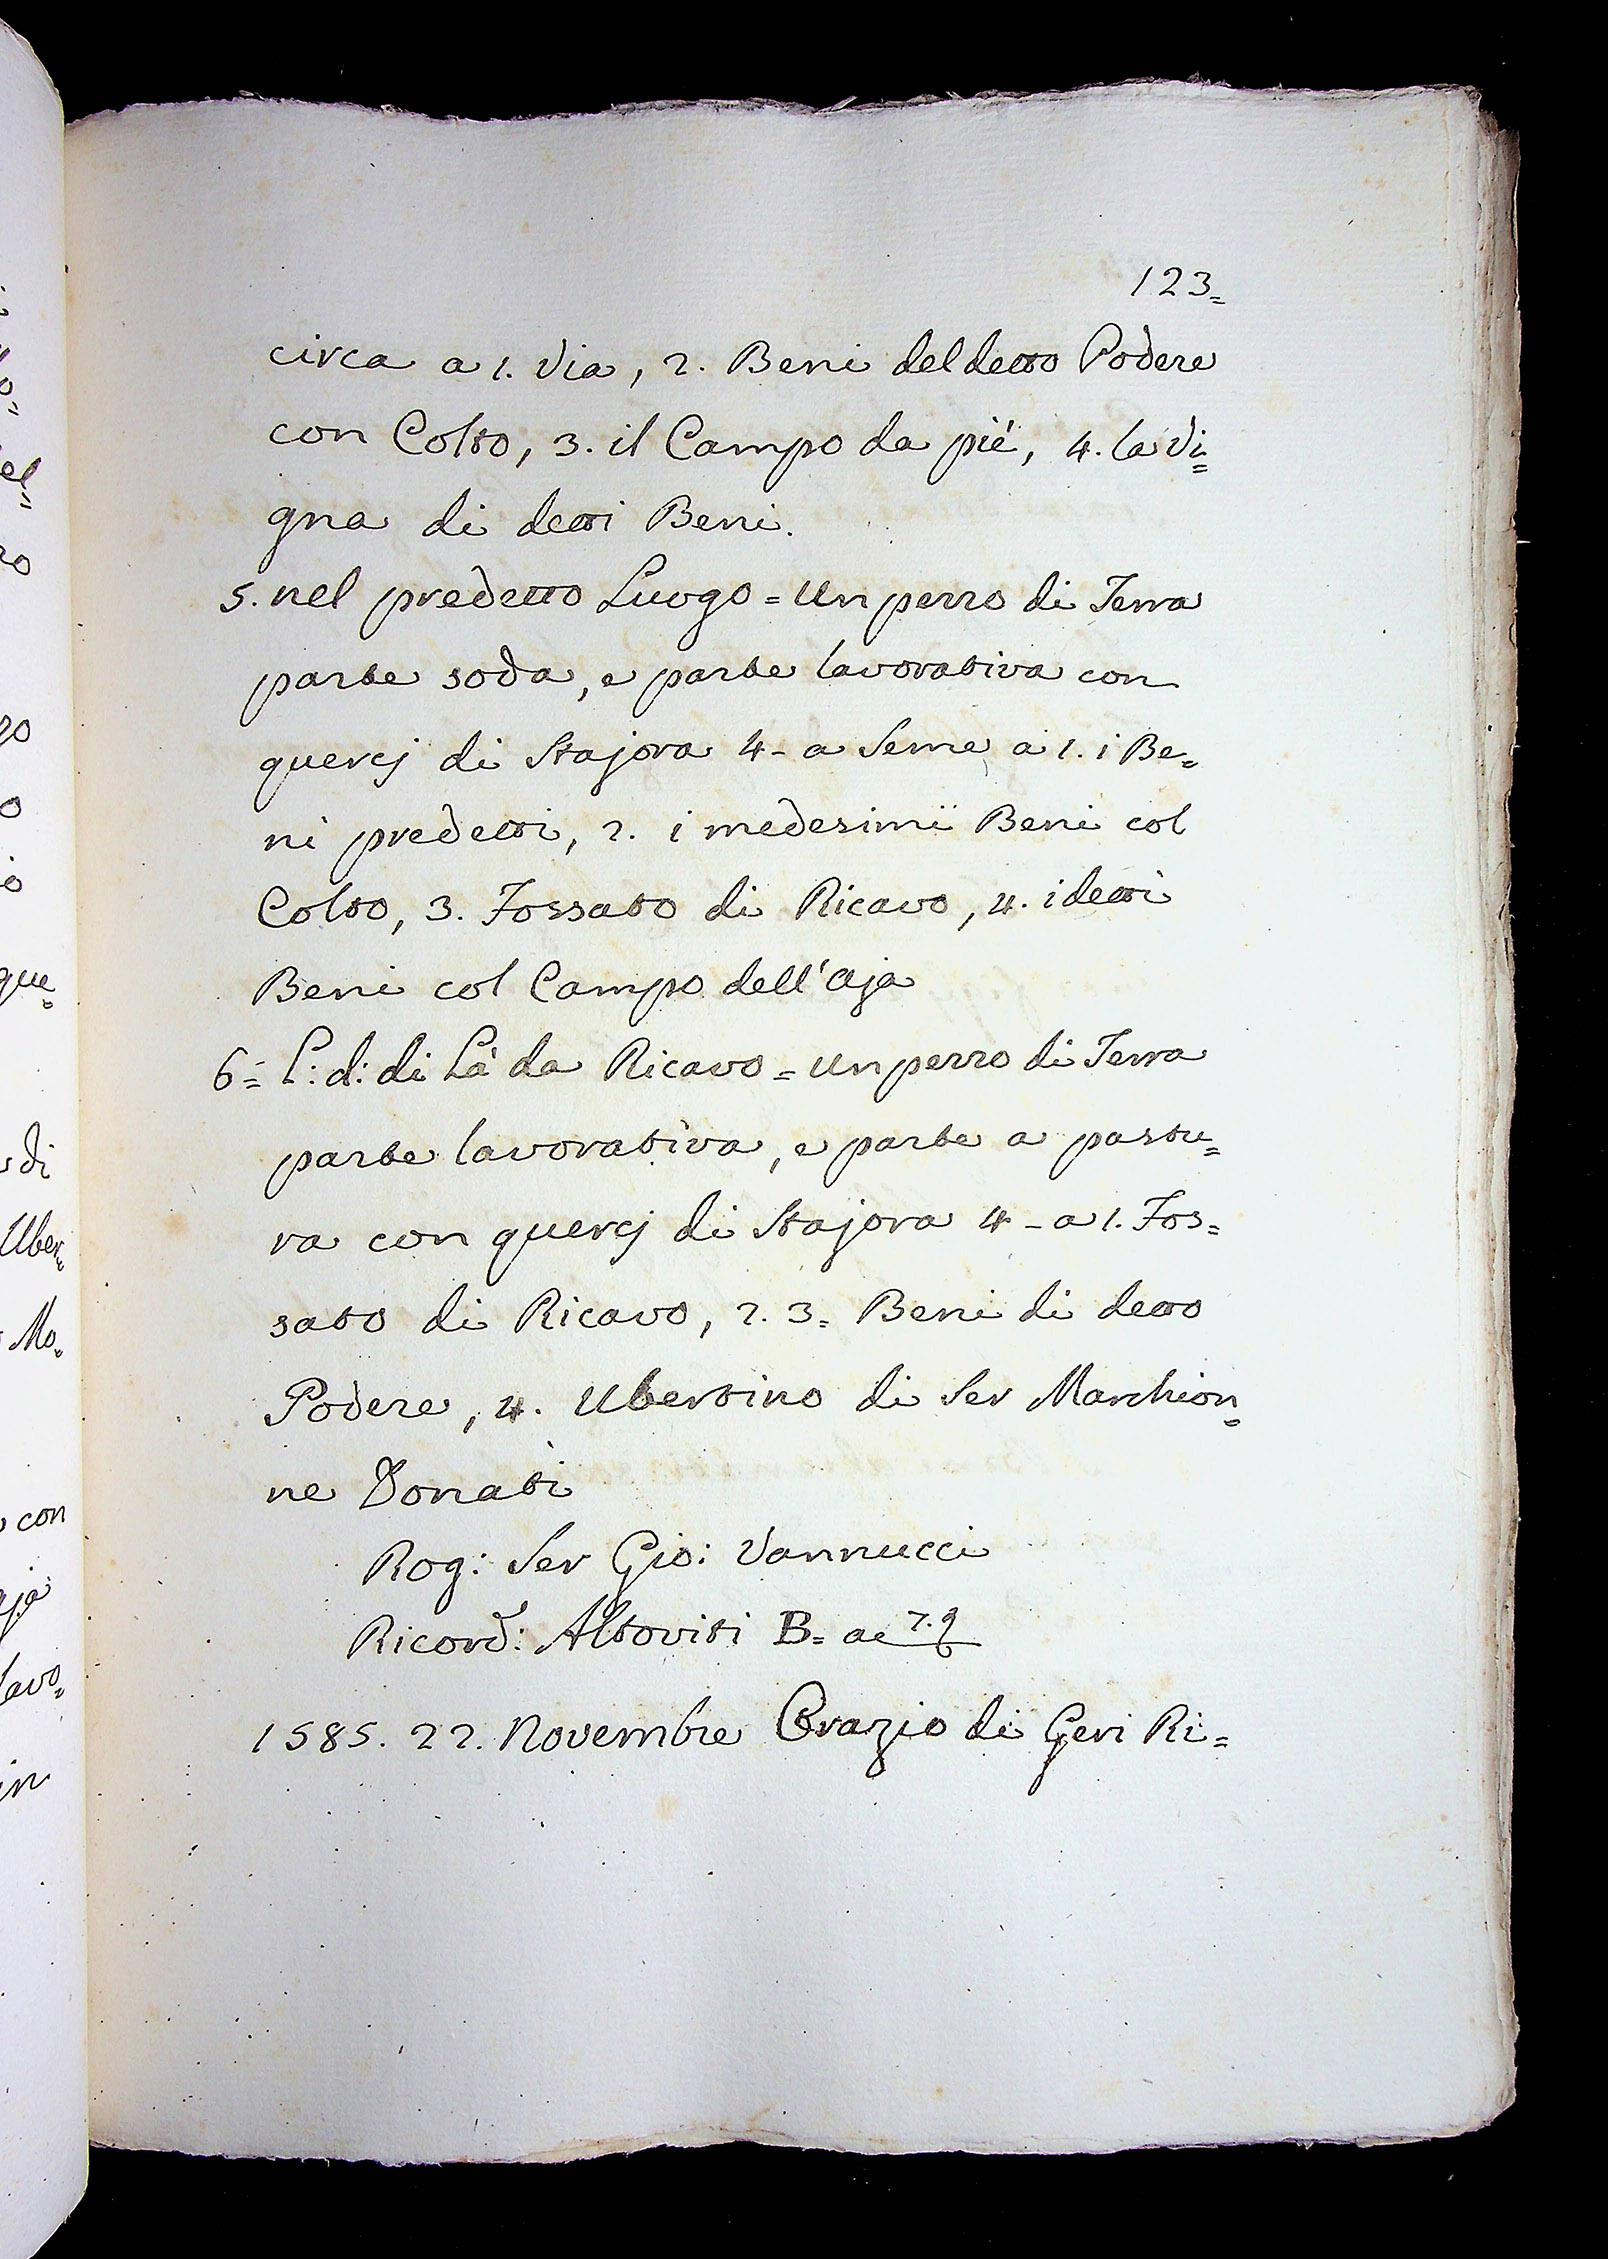 123=
circa a 1. Via, 2. Beni del detto Podere
con Colto, 3. il Campo da piè, 4. la Vi=
gna di detti Beni.
5. nel predetto Luogo = Un pezzo di Terra
parte soda, e parte lavorativa con
quercj di Stajora 4 - a Seme a 1. i Be=
ni predetti, 2. i medesimi Beni col
Colto, 3. Fossato di Ricavo, 4. i detti
Beni col Campo dell'Aja
6= L: d: di Là da Ricavo = Un pezzo di Terra
parte lavorativa, e parte a pastu=
ra con quercj di Stajora 4 - a 1. Fos=
sato di Ricavo, 2. 3= Beni di detto
Podere, 4. Ubertino di Ser Marchion=
ne Donati
Rog: Ser Gio: Vannucci
Ricord: Altoviti B= a
1585. 22. Novembre Orazio di Geri Ri=